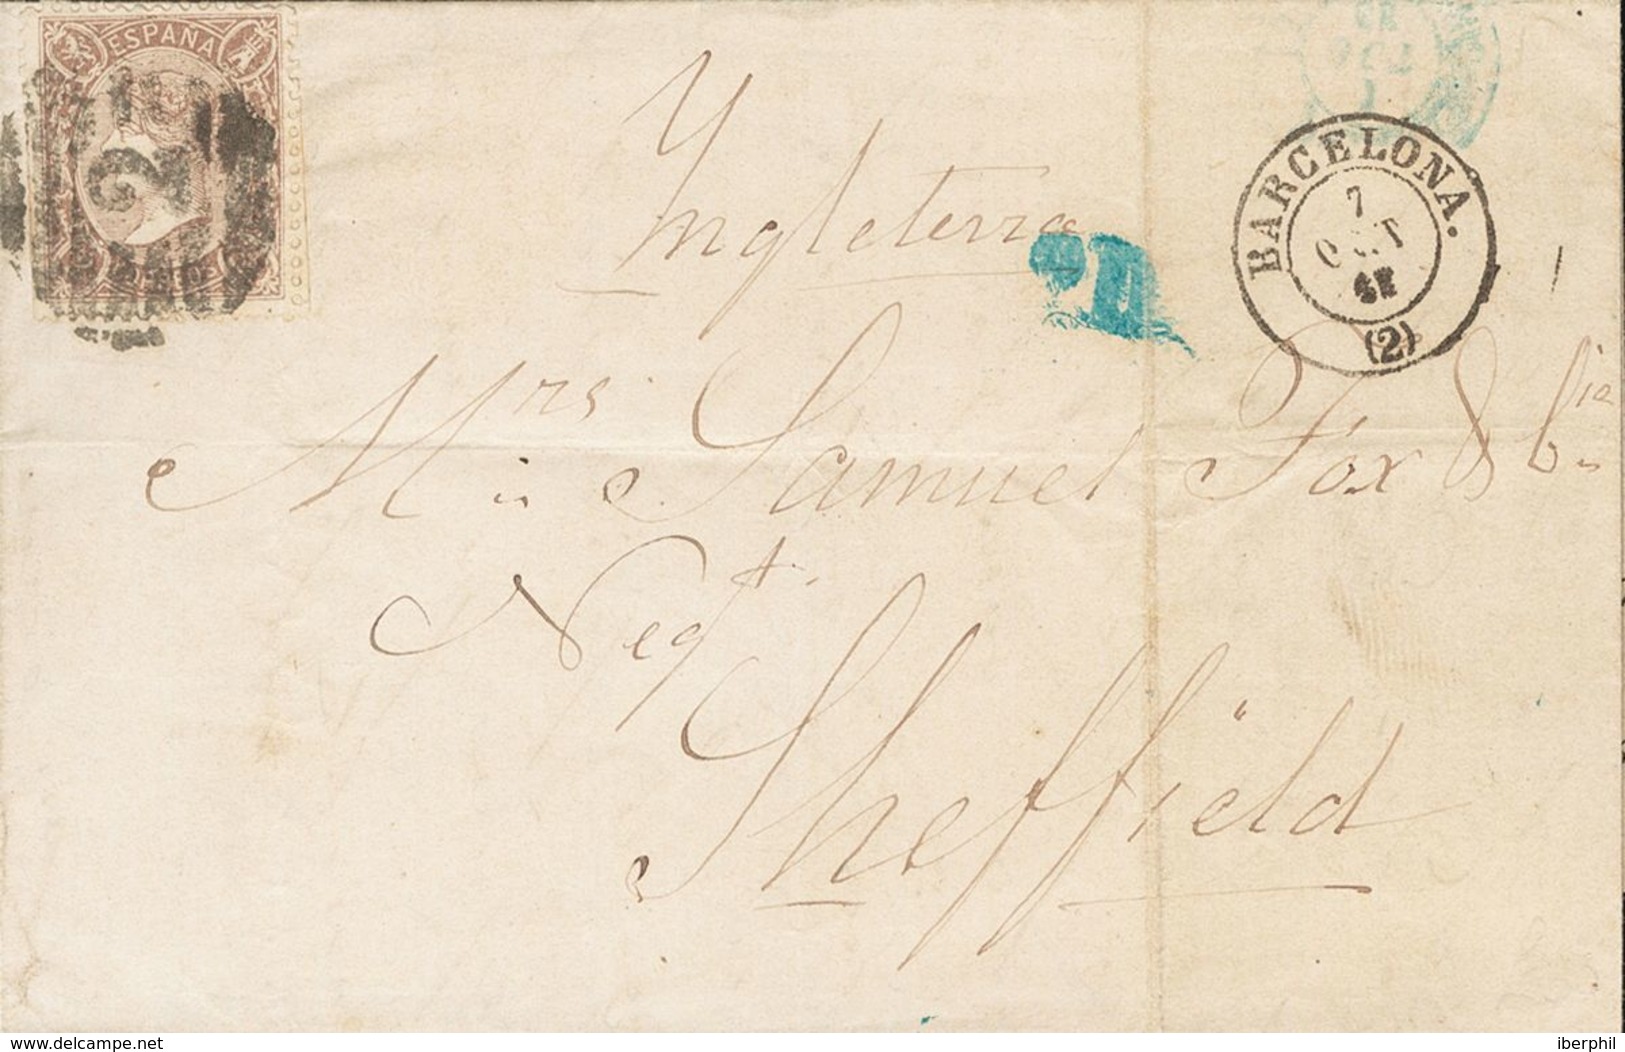 ESPAÑA
2
Ynglaterra
P.D.
BARCELONA.
7
OCT
(2)
Mrs Samuel Fox & Cia
Negt
Sheffield
www.delcampe.net
iberphil